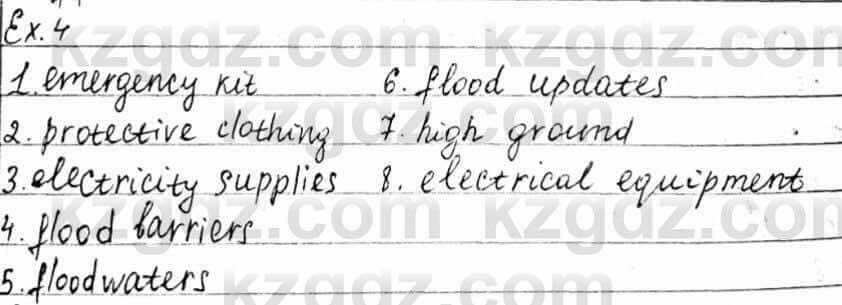 Ex. 4
1. emergency kit
2. protective clothing
3. electricity supplies
4. flood barriers
5. floodwaters
6. flood updates
7. high ground
8. electrical equipment
kzgdz.com